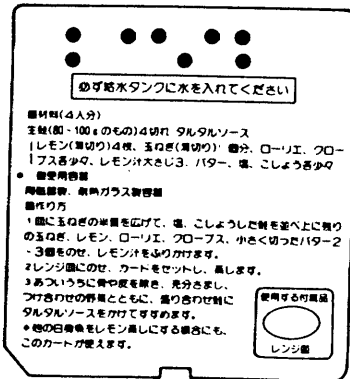 必ず給水タンクに水を入れてください
■材料(4人分)
生鮭(80-100gのもの)4切れ タルタルソース
レモン(薄切り)4枚、玉ねぎ(薄切り) 個分、ローリエ、クロー
ブス各少々、レモン汁大さじ3、バター、塩、こしょう各少々
● ■使用容器
陶磁器製、耐熱ガラス製容器
■作り方
1 皿に玉ねぎの半量を広げて、塩、こしょうした鮭を並べ上に残り
の玉ねぎ、レモン、ローリエ、クローブス、小さく切ったバター2
~3個をのせ、レモン汁をふりかけます。
2レンジ皿にのせ、カードをセットし、蒸します。
3あついうちに骨や皮を除き、充分さまし、
つけ合わせの野菜とともに、盛り合わせ鮭に
タルタルソースをかけてすすめます。
*他の白身魚をレモン蒸しにする場合にも、
このカードが使えます。
使用する付属品
レンジ皿